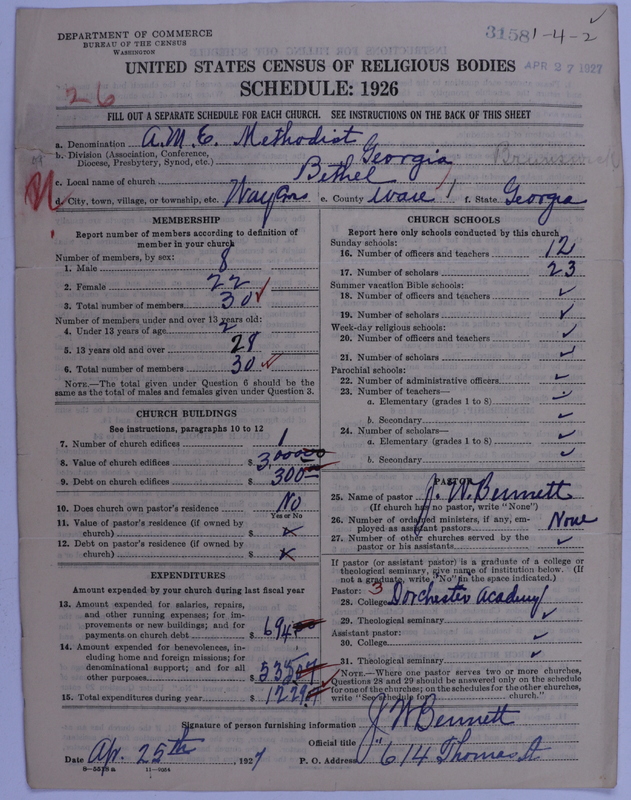 DEPARTMENT OF COMMERCE
BUREAU OF THE CENSUS
WASHINGTON
31581-4-2
APR 27 1927
UNITED STATES CENSUS OF RELIGIOUS BODIES
SCHEDULE: 1926
26
FILL OUT A SEPARATE SCHEDULE FOR EACH CHURCH. SEE INSTRUCTIONS ON THE BACK OF THIS SHEET
a. Denomination A.M.E. Methodist
b. Division (Association, Conference, Diocese, Presbytery, Synod, etc.) Georgia Brunswick
c. Local name of church Bethel
d. City, town, village, or township, etc. Waycross e. County Ware f. State Georgia
MEMBERSHIP
Report number of members according to definition of
member in your church
Number of members, by sex:
1. Male 8
2. Female 22
3. Total number of members 30
Number of members under and over 13 years old:
4. Under 13 years of age 2
5. 13 years old and over 28
6. Total number of members 30
NOTE.—The total given under Question 6 should be
same as the total of males and females given under Question 3.
CHURCH BUILDINGS
See instructions, paragraphs 10 to 12
7. Number of church edifices 1
8. Value of church edifices $ 3,000
9. Debt on church edifices $ 300
10. Does church own pastor's residence? No
Yes or No
11. Value of pastor's residence (if owned by
church) $ x
12. Debt on pastor's residence (if owned by
church) $ x
EXPENDITURES
Amount expended by your church during last fiscal year
13. Amount expended for salaries, repairs,
and other running expenses; for im-
provements or new buildings; and for
payments on church debt $ 694
14. Amount expended for benevolences, in-
cluding home and foreign missions; for
denominational support; and for all
other purposes $ 535
15. Total expenditures during year $ 1229
CHURCH SCHOOLS
Report here only schools conducted by this church
Sunday schools:
16. Number of officers and teachers 12
17. Number of scholars 23
Summer vacation Bible schools:
18. Number of officers and teachers
19. Number of scholars
Week-day religious schools:
20. Number of officers and teachers
21. Number of scholars
Parochial schools:
22. Number of administrative officers
23. Number of teachers—
a. Elementary (grades 1 to 8)
b. Secondary
24. Number of scholars—
a. Elementary (grades 1 to 8)
b. Secondary
PASTOR
25. Name of pastor J. W. Bennett
(If church has no pastor, write "None")
26. Number of ordained ministers, if any, em-
ployed as assistant pastors None
27. Number of other churches served by the
pastor or his assistants
If pastor (or assistant pastor) is a graduate of a college or
theological seminary, give name of institution below. (If
not a graduate, write "No" in the space indicated.)
Pastor: 3
28. College Dorchester Academy
29. Theological seminary
Assistant pastor:
30. College
31. Theological seminary
NOTE.—Where one pastor serves two or more churches,
Questions 28 and 29 should be answered only on the schedule
for one of the churches; on the schedules for the other churches,
write "See schedule for church."
Signature of person furnishing information J. W. Bennett
Official title "
Date Ap. 25th, 1927 P. O. Address 614 Thomas St
8—5518a 11—9054